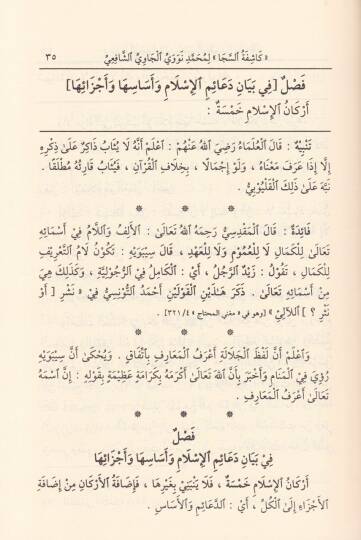 « كَاشِفَةُ ٱلسَّجَا » لِمُحَمَّدِ نَوَوِيِّ ٱلْجَاوِيِّ ٱلشَّافِعِيِّ ٣٥
فَصْلٌ [فِي بَيَانِ دَعَائِمِ ٱلْإِسْلَامِ وَأَسَاسِهَا وَأَجْزَائِهَا]
أَرْكَانُ ٱلْإِسْلَامِ خَمْسَةٌ :
تَنْبِيْهٌ : قَالَ ٱلْعُلَمَاءُ رَضِيَ ٱللهُ عَنْهُمْ : ٱعْلَمْ أَنَّهُ لَا يُثَابُ ذَاكِرٌ عَلَىٰ ذِكْرِهِ
إِلَّا إِذَا عَرَفَ مَعْنَاهُ ، وَلَوْ إِجْمَالًا ، بِخِلَافِ ٱلْقُرْآنِ ، فَيُثَابُ قَارِئُهُ مُطْلَقًا .
نَبَّهَ عَلَىٰ ذَلِكَ ٱلْقَلْيُوْبِيُّ .
* * *
فَائِدَةٌ : قَالَ ٱلْمَقْدِسِيُّ رَحِمَهُ ٱللهُ تَعَالَىٰ : ٱلْأَلِفُ وَٱللَّامُ فِيْ أَسْمَائِهِ
تَعَالَىٰ لِلْكَمَالِ لَا لِلْعُمُوْمِ وَلَا لِلْعَهْدِ ، قَالَ سِيْبَوَيْهِ : تَكُوْنُ لَامُ ٱلتَّعْرِيْفِ
لِلْكَمَالِ ، تَقُوْلُ : زَيْدٌ ٱلرَّجُلُ ، أَيْ : ٱلْكَامِلُ فِيْ ٱلرُّجُوْلِيَّةِ ، وَكَذَلِكَ هِيَ
مِنْ أَسْمَائِهِ تَعَالَىٰ . ذَكَرَ هَـٰذَيْنِ ٱلْقَوْلَيْنِ أَحْمَدُ ٱلتُّوْنِسِيُّ فِيْ « نَشْرِ [ أَوْ
نَثْرِ ؟ ] ٱللآلِيْ » [وهو في « مغني المحتاج » ٣٢١/٤] .
وَٱعْلَمْ أَنَّ لَفْظَ ٱلْجَلَالَةِ أَعْرَفُ ٱلْمَعَارِفِ بِٱتِّفَاقٍ . وَيُحْكَىٰ أَنَّ سِيْبَوَيْهِ
رُؤِيَ فِيْ ٱلْمَنَامِ وَأَخْبَرَ بِأَنَّ ٱللهَ تَعَالَىٰ أَكْرَمَهُ بِكَرَامَةٍ عَظِيْمَةٍ بِقَوْلِهِ : إِنَّ ٱسْمَهُ
تَعَالَىٰ أَعْرَفُ ٱلْمَعَارِفِ .
* * *
فَصْلٌ
فِيْ بَيَانِ دَعَائِمِ ٱلْإِسْلَامِ وَأَسَاسِهَا وَأَجْزَائِهَا
أَرْكَانُ ٱلْإِسْلَامِ خَمْسَةٌ ، فَلَا يَنْبَنِيْ بِغَيْرِهَا ، فَإِضَافَةُ ٱلْأَرْكَانِ مِنْ إِضَافَةِ
ٱلْأَجْزَاءِ إِلَىٰ ٱلْكُلِّ ، أَيْ : ٱلدَّعَائِمِ وَٱلْأَسَاسِ .